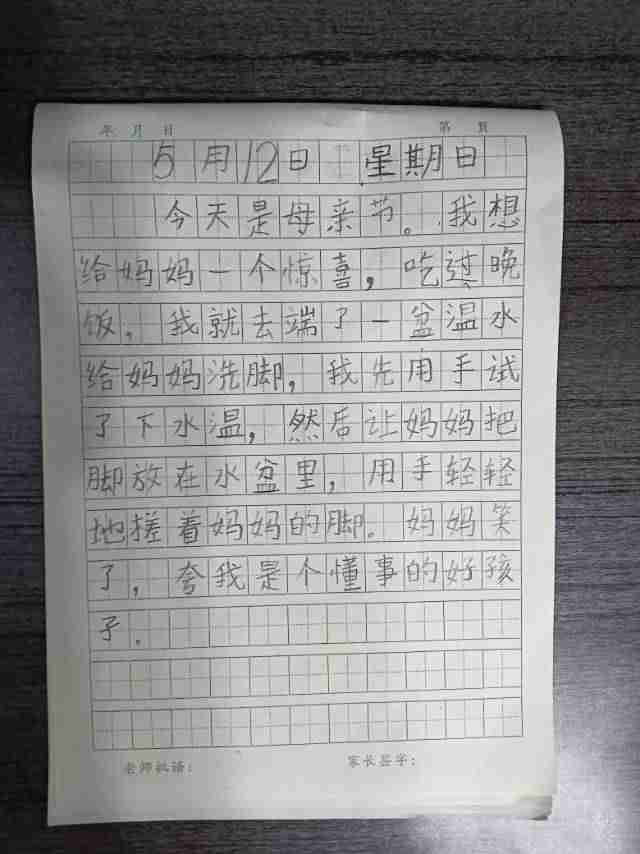 年 月 日 第 页
5月12日 星期日
今天是母亲节。我想
给妈妈一个惊喜，吃过晚
饭，我就去端了一盆温水
给妈妈洗脚，我先用手试
了下水温，然后让妈妈把
脚放在水盆里，用手轻轻
地搓着妈妈的脚。妈妈笑
了，夸我是个懂事的好孩
子。
老师批语： 家长签字：